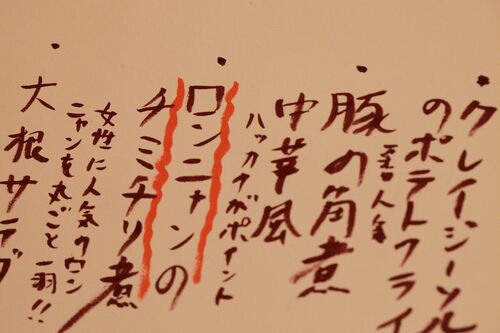 クレイジーソル
のポテトフライ
豚の角煮
中華風
ハッカクがポイント
ロンニャンの
チミチリ煮
女性に人気のロン
ニャンを丸ごと一羽!!
大根サラダ